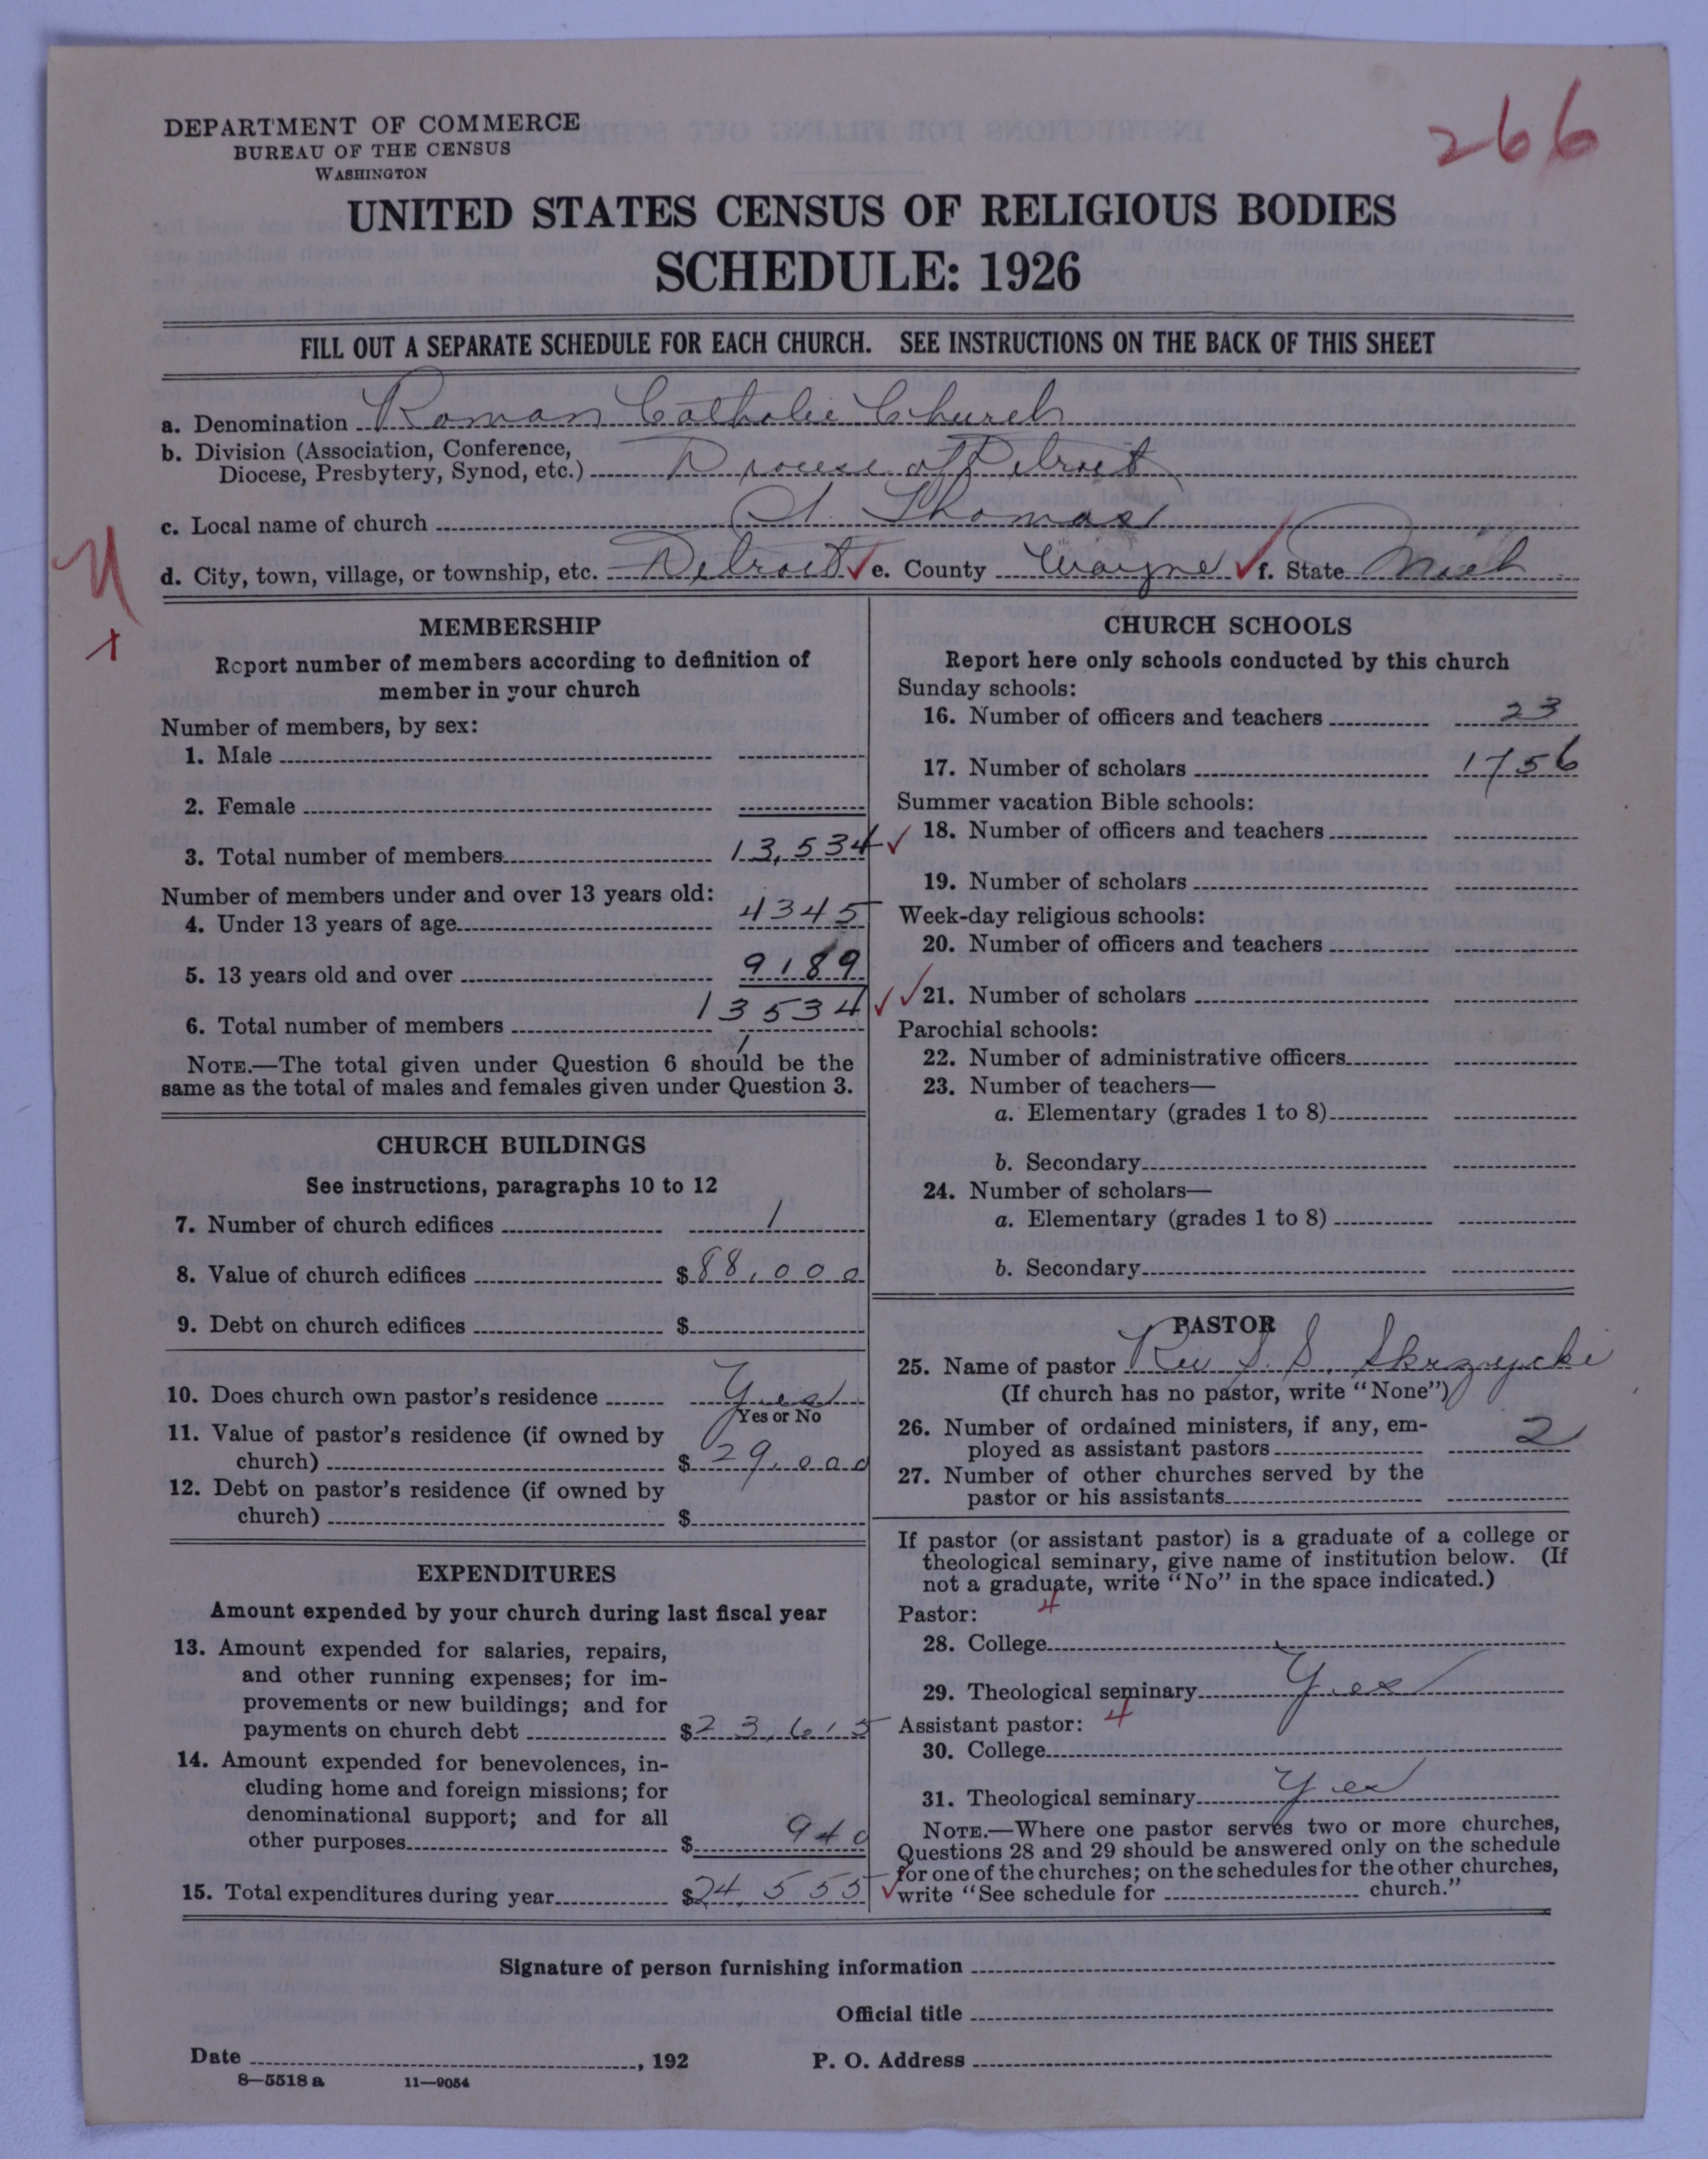 266
DEPARTMENT OF COMMERCE
BUREAU OF THE CENSUS
WASHINGTON
UNITED STATES CENSUS OF RELIGIOUS BODIES
SCHEDULE: 1926
FILL OUT A SEPARATE SCHEDULE FOR EACH CHURCH. SEE INSTRUCTIONS ON THE BACK OF THIS SHEET
a. Denomination Roman Catholic Church
b. Division (Association, Conference,
Diocese, Presbytery, Synod, etc.) Diocese of Detroit
c. Local name of church St. Thomas
d. City, town, village, or township, etc. Detroit e. County Wayne f. State Mich
MEMBERSHIP
Report number of members according to definition of
member in your church
Number of members, by sex:
1. Male
2. Female
3. Total number of members 13,534
Number of members under and over 13 years old:
4. Under 13 years of age 4345
5. 13 years old and over 9189
6. Total number of members 13534
NOTE.—The total given under Question 6 should be the
same as the total of males and females given under Question 3.
CHURCH BUILDINGS
See instructions, paragraphs 10 to 12
7. Number of church edifices 1
8. Value of church edifices $88,000
9. Debt on church edifices $
10. Does church own pastor's residence Yes
Yes or No
11. Value of pastor's residence (if owned by
church) $29,000
12. Debt on pastor's residence (if owned by
church) $
EXPENDITURES
Amount expended by your church during last fiscal year
13. Amount expended for salaries, repairs,
and other running expenses; for im-
provements or new buildings; and for
payments on church debt $23,615
14. Amount expended for benevolences, in-
cluding home and foreign missions; for
denominational support; and for all
other purposes $ 940
15. Total expenditures during year $24,555
CHURCH SCHOOLS
Report here only schools conducted by this church
Sunday schools:
16. Number of officers and teachers 23
17. Number of scholars 1756
Summer vacation Bible schools:
18. Number of officers and teachers
19. Number of scholars
Week-day religious schools:
20. Number of officers and teachers
21. Number of scholars
Parochial schools:
22. Number of administrative officers
23. Number of teachers—
a. Elementary (grades 1 to 8)
b. Secondary
24. Number of scholars—
a. Elementary (grades 1 to 8)
b. Secondary
PASTOR
25. Name of pastor Rev S. S. Skrzycki
(If church has no pastor, write "None")
26. Number of ordained ministers, if any, em-
ployed as assistant pastors 2
27. Number of other churches served by the
pastor or his assistants
If pastor (or assistant pastor) is a graduate of a college or
theological seminary, give name of institution below. (If
not a graduate, write "No" in the space indicated.)
Pastor: 4
28. College
29. Theological seminary Yes
Assistant pastor: 4
30. College
31. Theological seminary Yes
NOTE.—Where one pastor serves two or more churches,
Questions 28 and 29 should be answered only on the schedule
for one of the churches; on the schedules for the other churches,
write "See schedule for church."
Signature of person furnishing information
Official title
Date , 192 P. O. Address
8—5518 a 11—9054